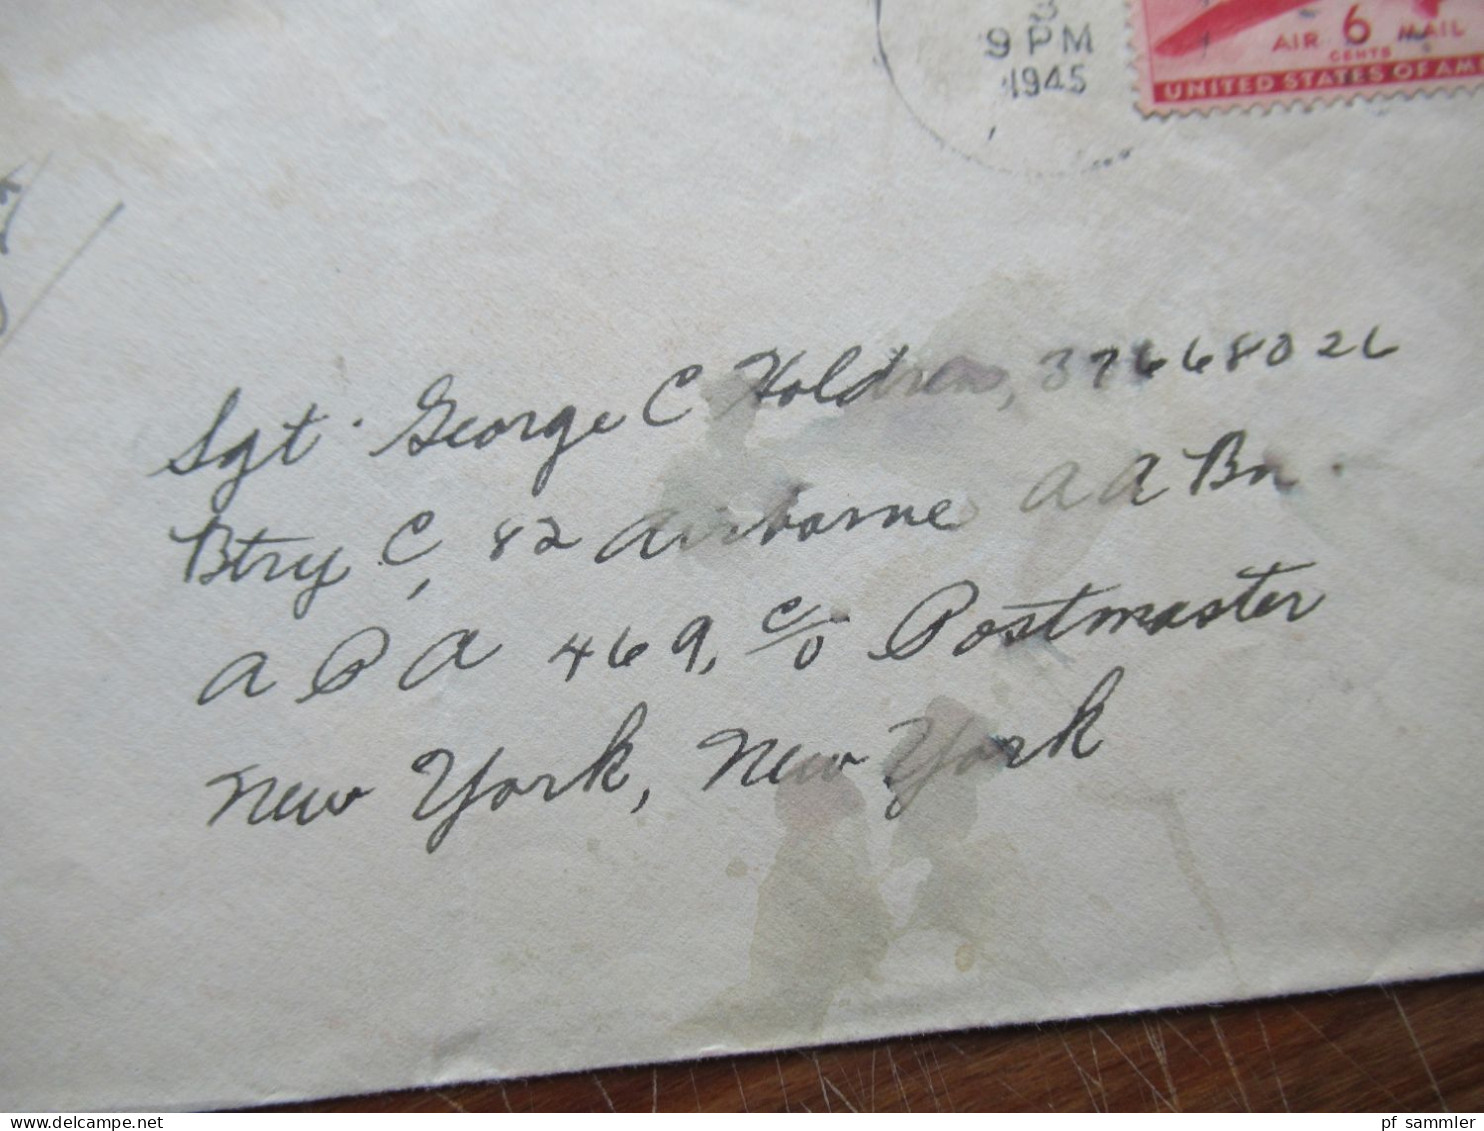 9 PM
1945
AIR 6 MAIL
CENTS
UNITED STATES OF AM
Sgt. George C Holdren, 37668026
Btry C, 82 Airborne AA Bn.
A P O 469, c/o Postmaster
New York, New York
pf sammler